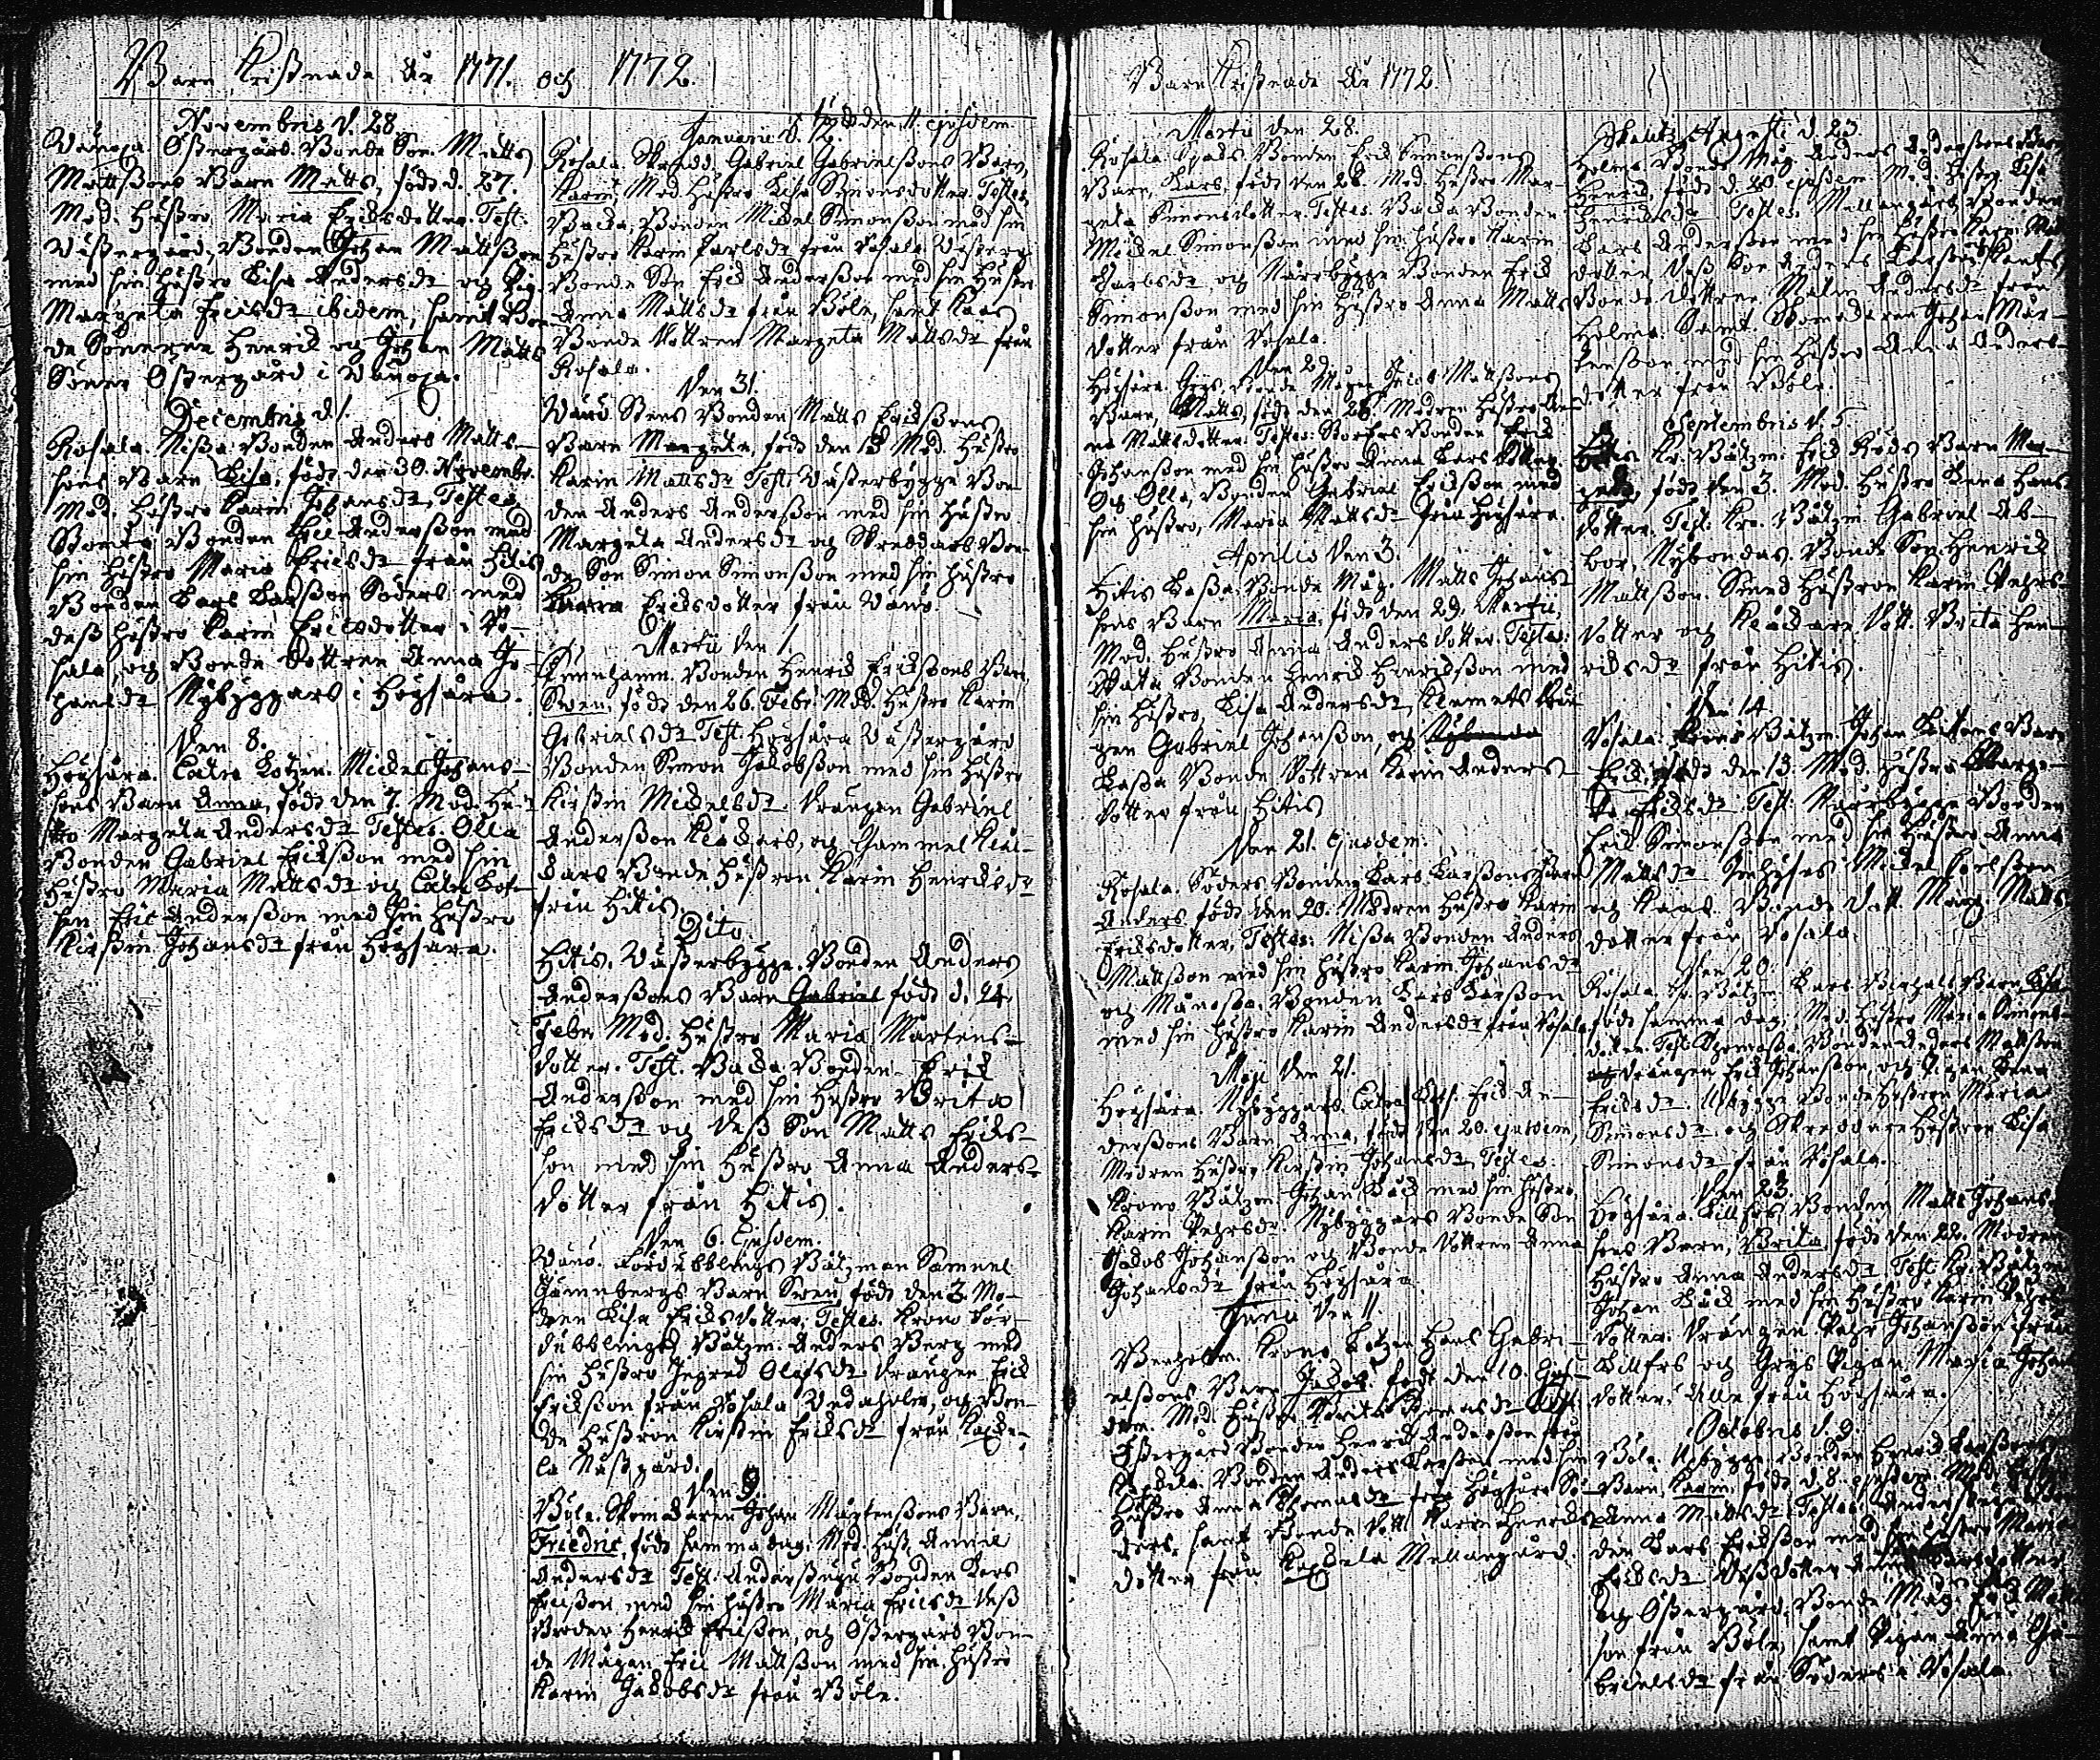 Barn Kristnade År 1771. och 1772.
Novembris d. 28.
Wänoxa. Östergårds Bonde Son Matts
Mattssons Barn Matts, född d. 27.
Mod. Hustro Maria Ericsdotter. Test:
Wästergård, Bonden Johan Mattsson
med sin Hustro Lisa Andersdr och Pig.
Margeta Ericsdr ibidem, samt Bon-
de Sönerne Henric och Johan Matts
Söner Östergård i Wänoxa.
Decembris d. 1.
Rosala. Nissa Bonden Anders Matts-
sons Barn Lisa, född den 30. Novembr.
Mod. Hustro Karin Johansdr, Testes
Bonden Eric Andersson med
sin Hustro Maria Ericsdr från Hitis
Bonden Lars Larsson Söders med
dess Hustro Karin Ericsdotter i Ro-
sala, och Bonde Dottren Anna Jo-
hansdr Nybyggars i Högsåra.
Den 8.
Högsåra. Extra Lotzen. Mickel Johans-
sons Barn Anna, född den 7. Mod. Hu-
stro Margeta Andersdr Testes. Olla
Bonden Gabriel Ericksson med sin
Hustro Maria Mattsdr och Extra Lot-
sen Eric Andersson med sin Hustro
Kirstin Johansdr från Högsåra.
Januarii d. 12. född den 11. ejusdem
Rosala. Skredd. Gabriel Gabrielssons Barn,
Karin, Mod. Hustro Lisa Simonsdotter. Testes,
Backa, Bonden Mickel Simonsson med sin
Hustro Karin Carlsdr från Rosala, Wästerg.
Bonde Son Erick Andersson med sin Hustro
Anna Mattsdr från Böle, samt Kaas
Bonde Dottren Margeta Mattsdr från
Rosala.
Den 31.
Wänö. Stens Bonden Matts Erickssons
Barn Margeta, född den 18 Mod. Hustro
Karin Mattsdr Test. Wästerbygge Bon-
den Anders Andersson med sin Hustro
Margeta Andersdr och Skreddars Bon-
de Son Simon Simonsson med sin Hustro
Maria Ericksdotter från Wänö.
Martii den 1.
Bonden Henrick Erickssons Barn,
Swen, född den 26. Febr. Mod. Hustro Karin
Gabrielsdr Test. Högsåra Wästergård
Bonden Simon Jakobsson med sin Hustro
Kirstin Mickelsdr. Drängen Gabriel
Andersson och Gammel
Bonde Hustron Karin Henricksdr
från Hitis.
Dito.
Hitis. Wästerbygge. Bonden Anders
Anderssons Barn Gabriel född d. 24.
Febr. Mod. Hustro Maria Mårtens-
dotter. Test. Backa Bonden Erick
Andersson med sin Hustro Brita
Ericksdr och dess Son Matts Ericks-
son med sin Hustro Anna Anders-
dotter från Hitis.
Den 6. Ejusdem.
Wänö. Fördubblings Båtzman Samuel
Barn Swen, född den 3. Mo-
dren Lisa Ericksdotter, Testes. Krono För-
dubblings Båtzm. Anders Berg med
sin Hustro Ingred Olofsdr Drängen Erick
Ericksson från Rosala, och Bon-
de Hustron Kirstin Ericksdr från
Den 9.
Böle. Skomakaren Johan Mårtenssons Barn,
Friedric, född samma dag. Mod. Hust. Anna
Andersdr Test. Bonden Lars
Ericsson med sin Hustro Maria Ericsdr Dess
Broder Henrick Ericsson, och Östergårds Bon-
de Mågen Eric Mattsson med sin Hustro
Karin Jakobsdr från Böle.
Barn Kristnade År 1772
Martii den 28.
Rosala. Spads. Bonden Erick Simonssons
Barn, Lars, född den 28. Mod. Hustro Mar-
geta Simonsdotter. Testes. Backa Bonden
Mickel Simonsson med sin Hustro Karin
Carlsdr och Norrbygge Bonden Erick
Simonsson med sin Hustro Anna Matts
dotter från Rosala.
Den 29.
Högsåra. Grijs. Bonde Mågen Jacob Mattssons
Barn, Matts, född den 28. Modren Hustro An-
na Mattsdotter. Testes: Bonden Erick
Johansson med sin Hustro Anna Larsdotter
Och Olla, Bonden Gabriel Ericksson med
sin Hustro, Maria Mattsdr från Högsåra.
Aprilis den 3.
Hitis. Bonde Måg. Matts Johans-
sons Barn Maria, född den 29. Martii,
Mod. Hustro Anna Andersdotter. Testes:
Bonden Henrick Henricksson med
sin Hustro, Lisa Andersdr, Klemets Drän-
gen Gabriel Johansson, och
Bonde Dottren Karin Anders-
dotter från Hitis
Den 21. ejusdem.
Rosala. Söders Bonden Lars Larssons Barn
Anders född den 20. Modren Hustro Karin
Ericksdotter, Testes: Nissa Bonden Anders
Mattsson med sin Hustro Karin Johansdr
och Bonden Lars Larsson
med sin Hustro Karin Andersdr från Rosala
Maji den 21.
Högsåra. Nybyggars Extra Lots. Erick An-
derssons Barn, Anna, född den 20. ejusdem,
Modren Hustro Kirstin Johansdr, Testes.
Krono Båtzm. Johan Bäck med sin Hustro
Karin Pehrsdr. Nybyggars Bonde Son
Jacob Johansson och Bonde Dottren Anna
Johansdr från Högsåra
Junii den 11.
Krono Lotzen Hans Gabri-
elssons Barn Jakob född den 10. Ejus-
dem. Mod. Hustro Brita Thomasdr Test.
Östergård Bonden Henrick Andersson från
Bonden Anders Larsson med sin
Hustro Anna Thomasdr från Högsåra Sö-
ders, samt Bonde Dott. Karin Henricks
dotter från Mellangård.
Augusti d. 23
Holma Bonde Måg Anders Anderssons Barn
Henrick född d. 20. ejusdem. Mod. Hustro Lisa
Henricksdr Testes. Mellangårds Bonden
Lars Andersson med sin Hustro Karin
dotter Dess Son Anders Larsson
Bonde Dottren Malin Andersdr från
Holma. Samt Skomakaren Johan Mår-
tensson med sin Hustro Anna Anders-
dotter från Böle.
Septembris d. 5.
Hitis Kr. Båtzm. Erick Röds Barn Mar-
geta, född den 3. Mod. Hustro Lena Hans-
dotter. Test. Kro. Båtzm. Gabriel Ab-
bor, Nybondas Bonde Son Henrick
Mattsson. Smed Hustron Karin Pehrs-
dotter och Dott. Brita Hen-
ricksdr från Hitis.
Den 14.
Rosala. Krono Båtzm. Johan Barn
Erick, född den 13. Mod. Hustro Marge-
ta Ericksdr Test. Norrbygge Bonden
Erick Simonsson med sin Hustro Anna
Mattsdr Mickel Carlsson
och Kaas Bonde Dott. Marg. Matts
dotter från Rosala.
Den 20.
Rosala. Kr. Båtzm. Lars Barn Lisa
född samma dag. Mod. Hustro Maria Simons-
dotter. Test. Bonden Anders Mattsson
Drängen Erick Johansson och Pigan Lena
Ericksdr. Nybygge Bonde Hustron Maria
Simonsdr och Skreddare Hustron Lisa
Simonsdr från Rosala.
Den 23.
Högsåra. Bonden Matts Johans-
sons Barn, Brita född den 22. Modren
Hustro Anna Andersdr. Test. Kr. Båtzm.
Johan Bäck med sin Hustro Karin Pehrs
dotter. Drängen Pehr Johansson från
och Grijs Pigan Maria Johans
dotter. Alla från Högsåra.
Octobris d. 9.
Böle. Nybygge Bonden Henrick Larssons
Barn, Karin född d. 8. ejusdem. Mod. Hustro
Anna Mattsdr. Testes.
den Lars Ericksson med sin Hustro Maria
Ericksdr
och Östergård, Bonde Måg. Erick Matts
son från Böle, samt Pigan Anna Ga-
brielsdr från Söders i Rosala.